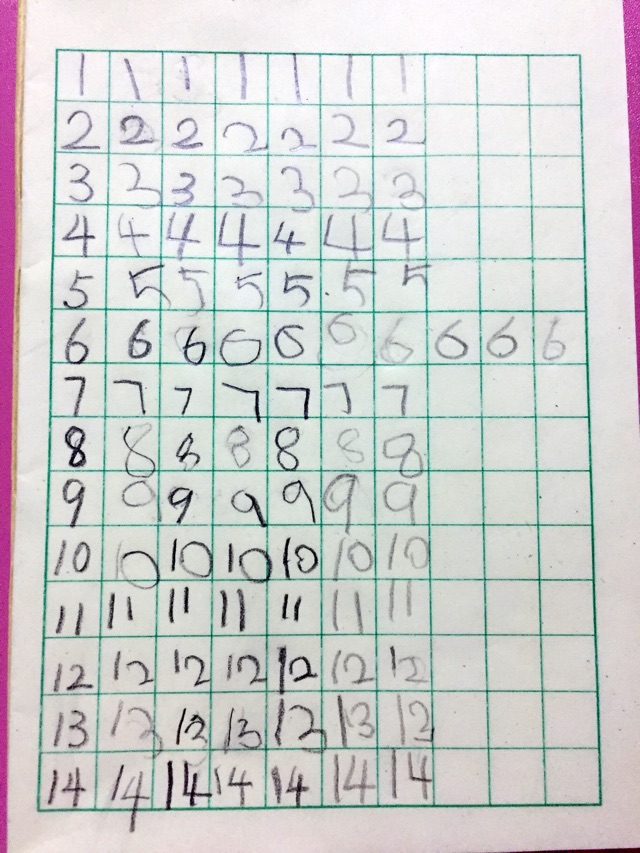 1 1 1 1 1 1 1
2 2 2 2 2 2 2
3 3 3 3 3 3 3
4 4 4 4 4 4 4
5 5 5 5 5 5 5
6 6 6 6 6 6 6 6 6 6
7 7 7 7 7 7 7
8 8 8 8 8 8 8
9 9 9 9 9 9 9
10 10 10 10 10 10 10
11 11 11 11 11 11 11
12 12 12 12 12 12 12
13 13 13 13 13 13 13
14 14 14 14 14 14 14